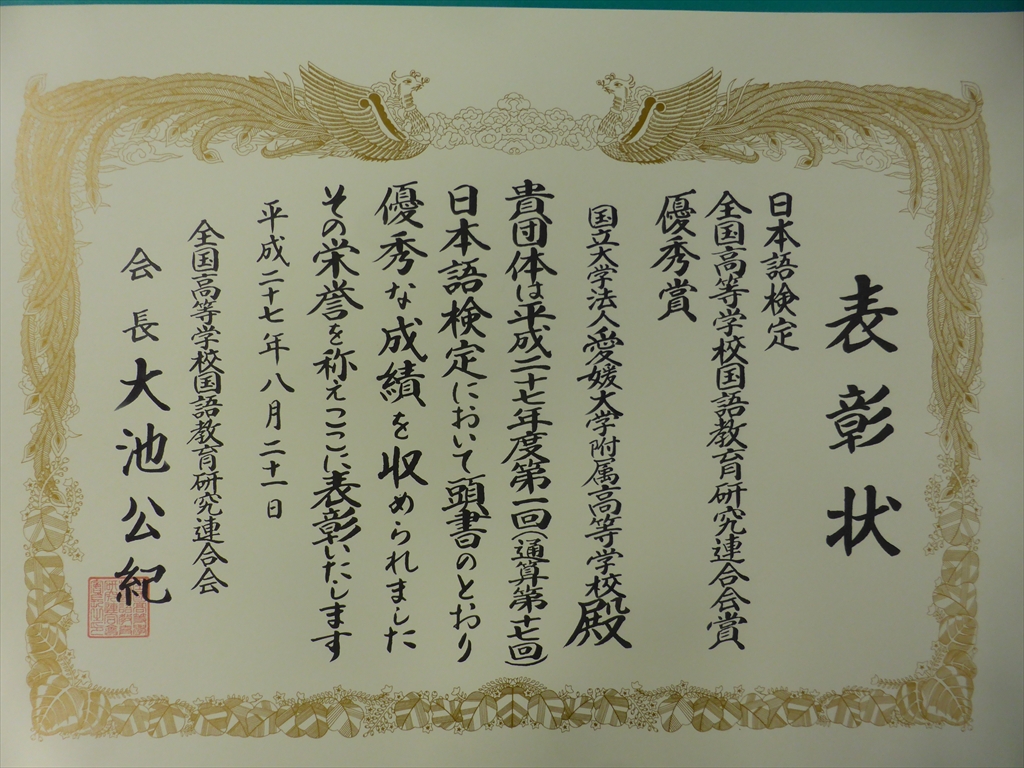 表彰状
日本語検定
全国高等学校国語教育研究連合会賞
優秀賞
国立大学法人愛媛大学附属高等学校殿
貴団体は平成二十七年度第一回(通算第十七回)
日本語検定において頭書のとおり
優秀な成績を収められました
その栄誉を称えここに表彰いたします
平成二十七年八月二十一日
全国高等学校国語教育研究連合会
会長大池公紀